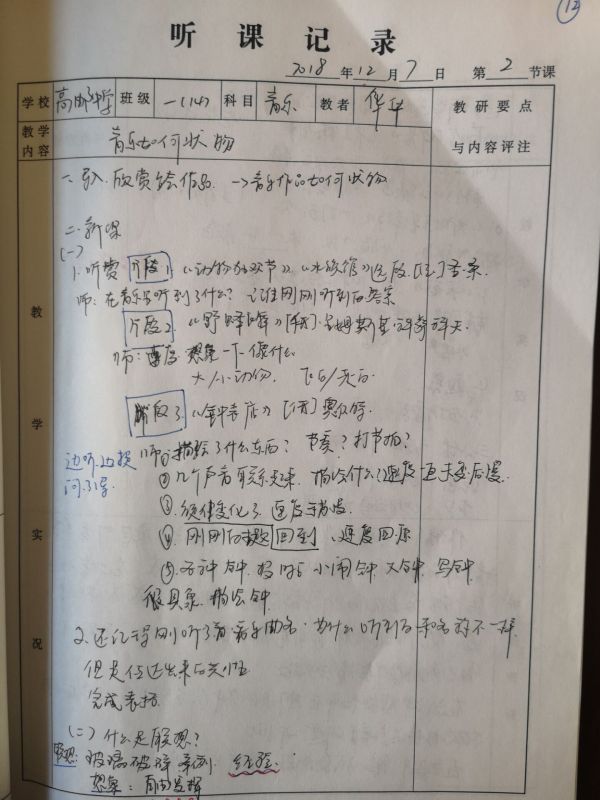 12
听课记录
2018年12月7日 第2节课
学校 高邮中学 班级 一(14) 科目 音乐 教者 华 教研要点
教学内容 音乐如何状物 与内容评注
一、引入 欣赏绘作品 →音乐作品如何状物
二、新课
(一)
1. 听赏 片段1.《动物狂欢节》《水族馆》选段 [法]圣·桑
师：在音乐当中听到了什么？ 刚刚听到的答案
片段2.《野蜂飞舞》[俄]·里姆斯基·科萨科夫
师： 想象一下像什么
大/小动物. 飞的/爬的
片段3.《钟表店》[德]奥尔特.
边听边提问.引导
师①描绘了什么东西？节奏？打节拍？
②几个声音联系起来 描绘什么？速度
③旋律变化了 速度
④刚刚的主题回到 速度回原
⑤各种钟 小闹钟 大钟
很具象 描绘钟
2. 还记得刚听了音乐曲名·为什么听到的和名称不一样
但是
完成表格
(二)什么是联想？
联想：玻璃破碎 经验.
想象：自由发挥
教学实况